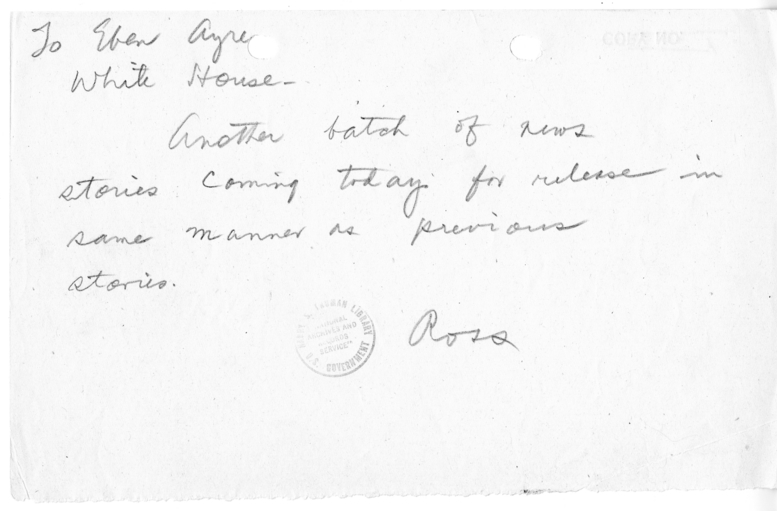 To Eben Ayre
White House-
Another batch of news
stories coming today for release in
same manner as previous
stories.
Ross
HARRY S. TRUMAN LIBRARY
NATIONAL
ARCHIVES AND
RECORDS
SERVICE
U.S. GOVERNMENT
COPY NO.